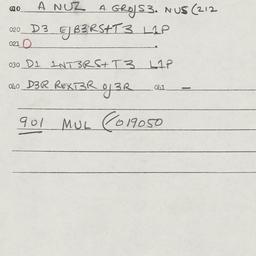 010 A NUZ A GROJS3. NUS (212
020 D3 EJB3RS+T3 L1P
021 O .
030 D1 1NT3RS+T3 L1P
040 D3R R3XT3R OJ3R 041 —
901 MUL (019050